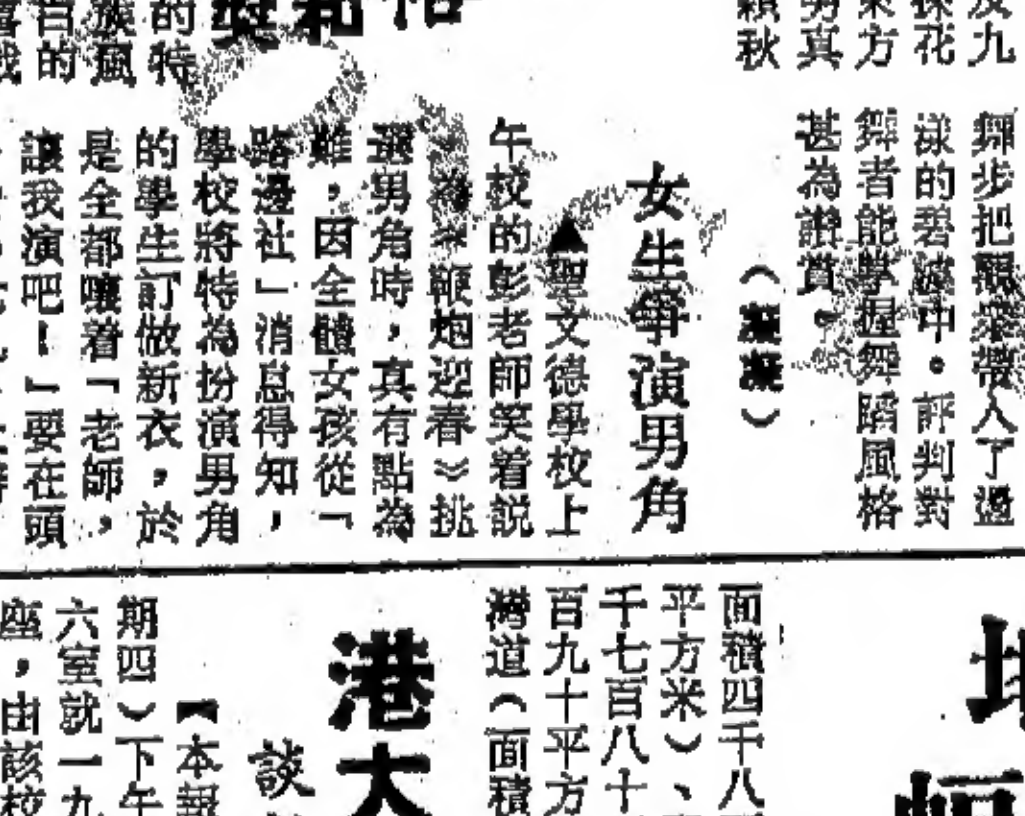 及九
採花
來方
男真
穎秋
舞步把觀眾帶入了過
漾的碧濾中。評判對
舞者能學握舞蹈風格
甚為讚賞。
(凝凝)
女生爭演男角
▲聖文德學校上
午校的彭老師笑着説
鞭炮迎春》挑
選男角時,真有點為
難,因全體女孩從「
路邊社」消息得知,
學校將特為扮演男角
的學生訂做新衣,於
是全都嚷着「老師,
讓我演吧!」要在頭
和
的特
族風
白的
面積四千八
平方米)、
千七百八十
百九十平方
灣道(面積
港大
談
【本報
期四)下午
六室就一九
座,由該校